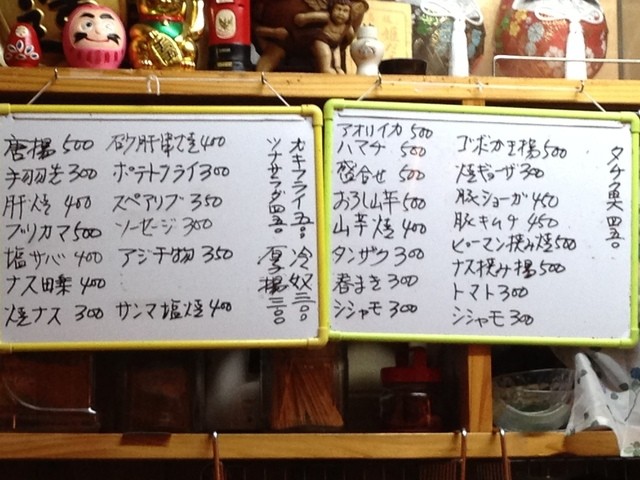 唐揚 500
手羽先 300
肝焼 400
ブリカマ 500
塩サバ 400
ナス田楽 400
焼ナス 300
砂肝串焼 400
ポテトフライ 300
スペアリブ 350
ソーセージ 300
アジ干物 350
サンマ塩焼 400
カキフライ 五〇〇
ツナサラダ 四五〇
冷奴 三〇〇
厚揚 三〇〇
アオリイカ 500
ハマチ 500
盛合せ 500
おろし山芋 500
山芋焼 400
タンザク 300
春まき 300
シシャモ 300
ゴボウ玉揚 500
焼ギョーザ 300
豚ショーガ 450
豚キムチ 450
ピーマン挟み焼 500
ナス挟み揚 500
トマト 300
シシャモ 300
タチ魚 四五〇